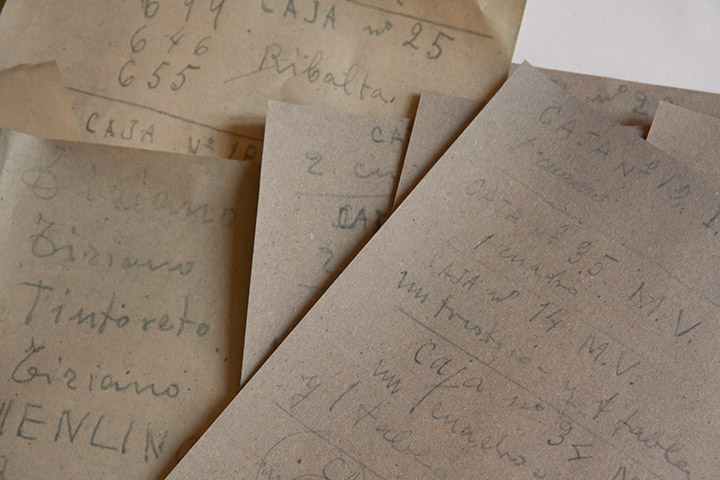 699 CAJA nº 25
646
655 Ribalta.
CAJA Nº 18
Tiziano
Tiziano
Tintoreto.
Tiziano
MENLING
CA
2
CA
2
CAJA Nº 19.
1 cuadro
CAJA Nº 35.
1 cuadro. M.V.
CAJA nº 14 M.V.
un tristico y 1 tabla
Caja nº 34 M
un cuadro
y 1 tabla
CA